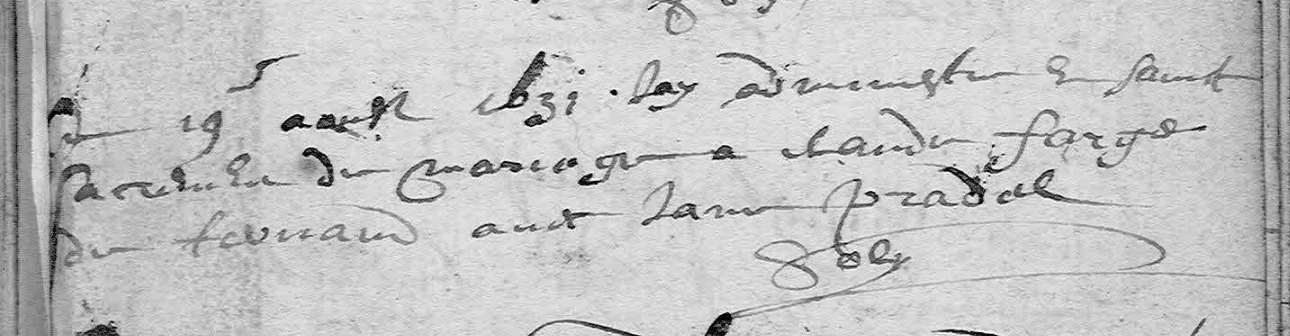 Le 19 aoust 1631 Jay administre le sainct
sacrement de mariage a claude farge
de avecq Jane pradel